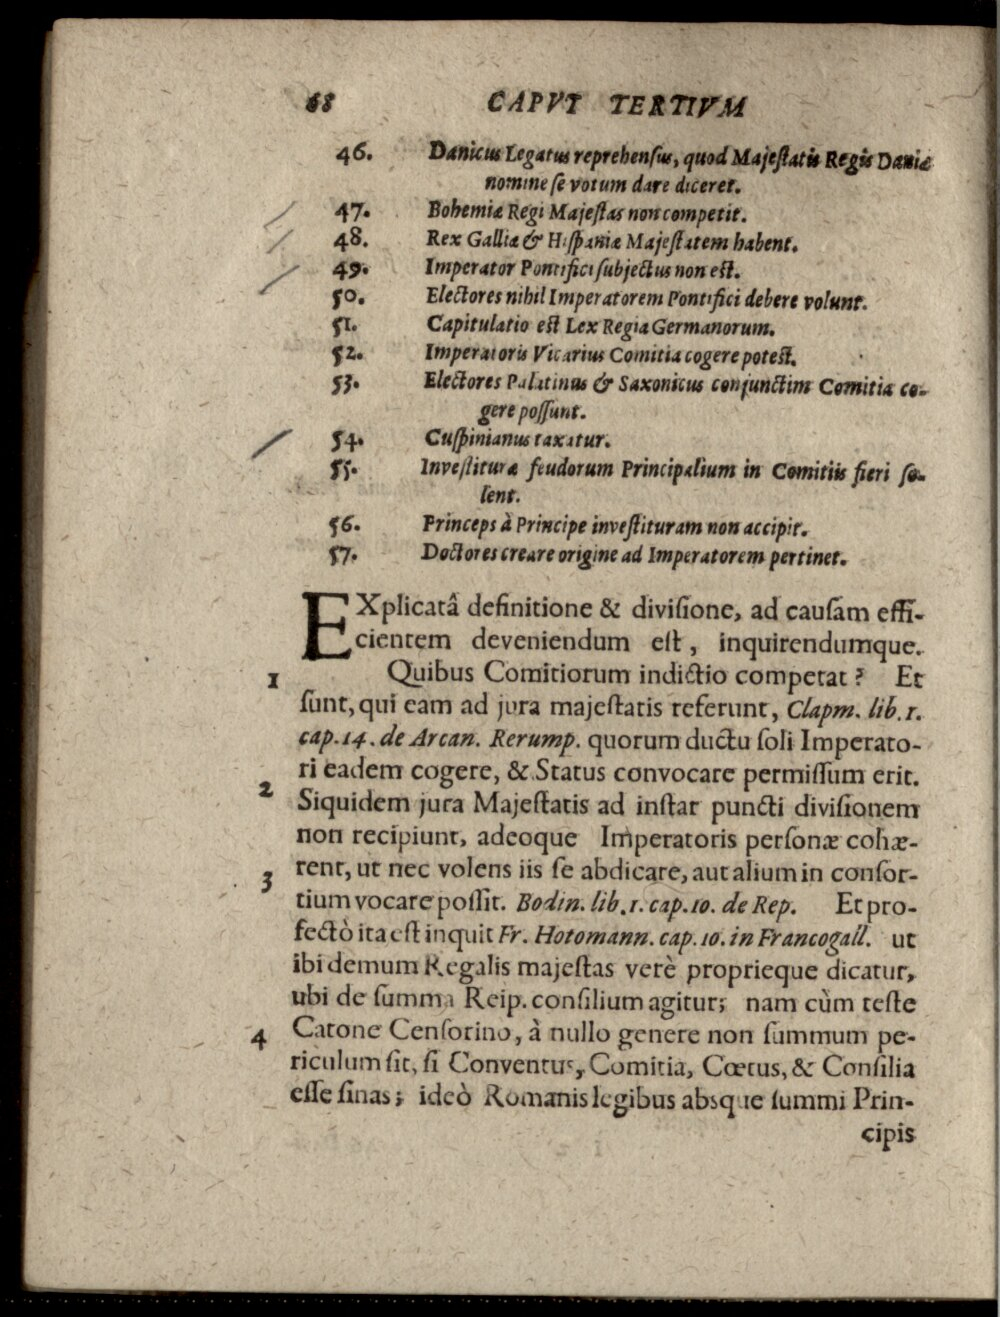 68 CAPVT TERTIVM
46. Danicus Legatus reprehensus, quod Majestatis Regis Daniæ
nomine se votum dare diceret.
47. Bohemiæ Regi Majestas non competit.
48. Rex Galliæ & Hispaniæ Majestatem habent.
49. Imperator Pontifici subjectus non est.
50. Electores nihil Imperatorem Pontifici debere volunt.
51. Capitulatio est Lex Regia Germanorum.
52. Imperatoris Vicarius Comitia cogere potest.
53. Electores Palatinus & Saxonicus conjunctim Comitia co-
gere possunt.
54. Cuspinianus taxatur.
55. Investituræ feudorum Principalium in Comitiis fieri so-
lent.
56. Princeps à Principe investituram non accipit.
57. Doctores creare origine ad Imperatorem pertinet.
EXplicatâ definitione & divisione, ad causam effi-
cientem deveniendum est, inquirendumque.
1 Quibus Comitiorum indictio competat? Et
sunt, qui eam ad jura majestatis referunt, Clapm. lib. 1.
cap. 14. de Arcan. Rerump. quorum ductu soli Imperato-
ri eadem cogere, & Status convocare permissum erit.
2 Siquidem jura Majestatis ad instar puncti divisionem
non recipiunt, adeoque Imperatoris personæ cohæ-
rent, ut nec volens iis se abdicare, aut alium in consor-
3 tium vocare possit. Bodin. lib. 1. cap. 10. de Rep. Et pro-
fectò ita est inquit Fr. Hotomann. cap. 10. in Francogall. ut
ibi demum Regalis majestas verè proprieque dicatur,
ubi de summa Reip. consilium agitur; nam cùm teste
4 Catone Censorino, à nullo genere non summum pe-
riculum sit, si Conventus, Comitia, Cœtus, & Consilia
esse sinas; ideò Romanis legibus absque summi Prin-
cipis